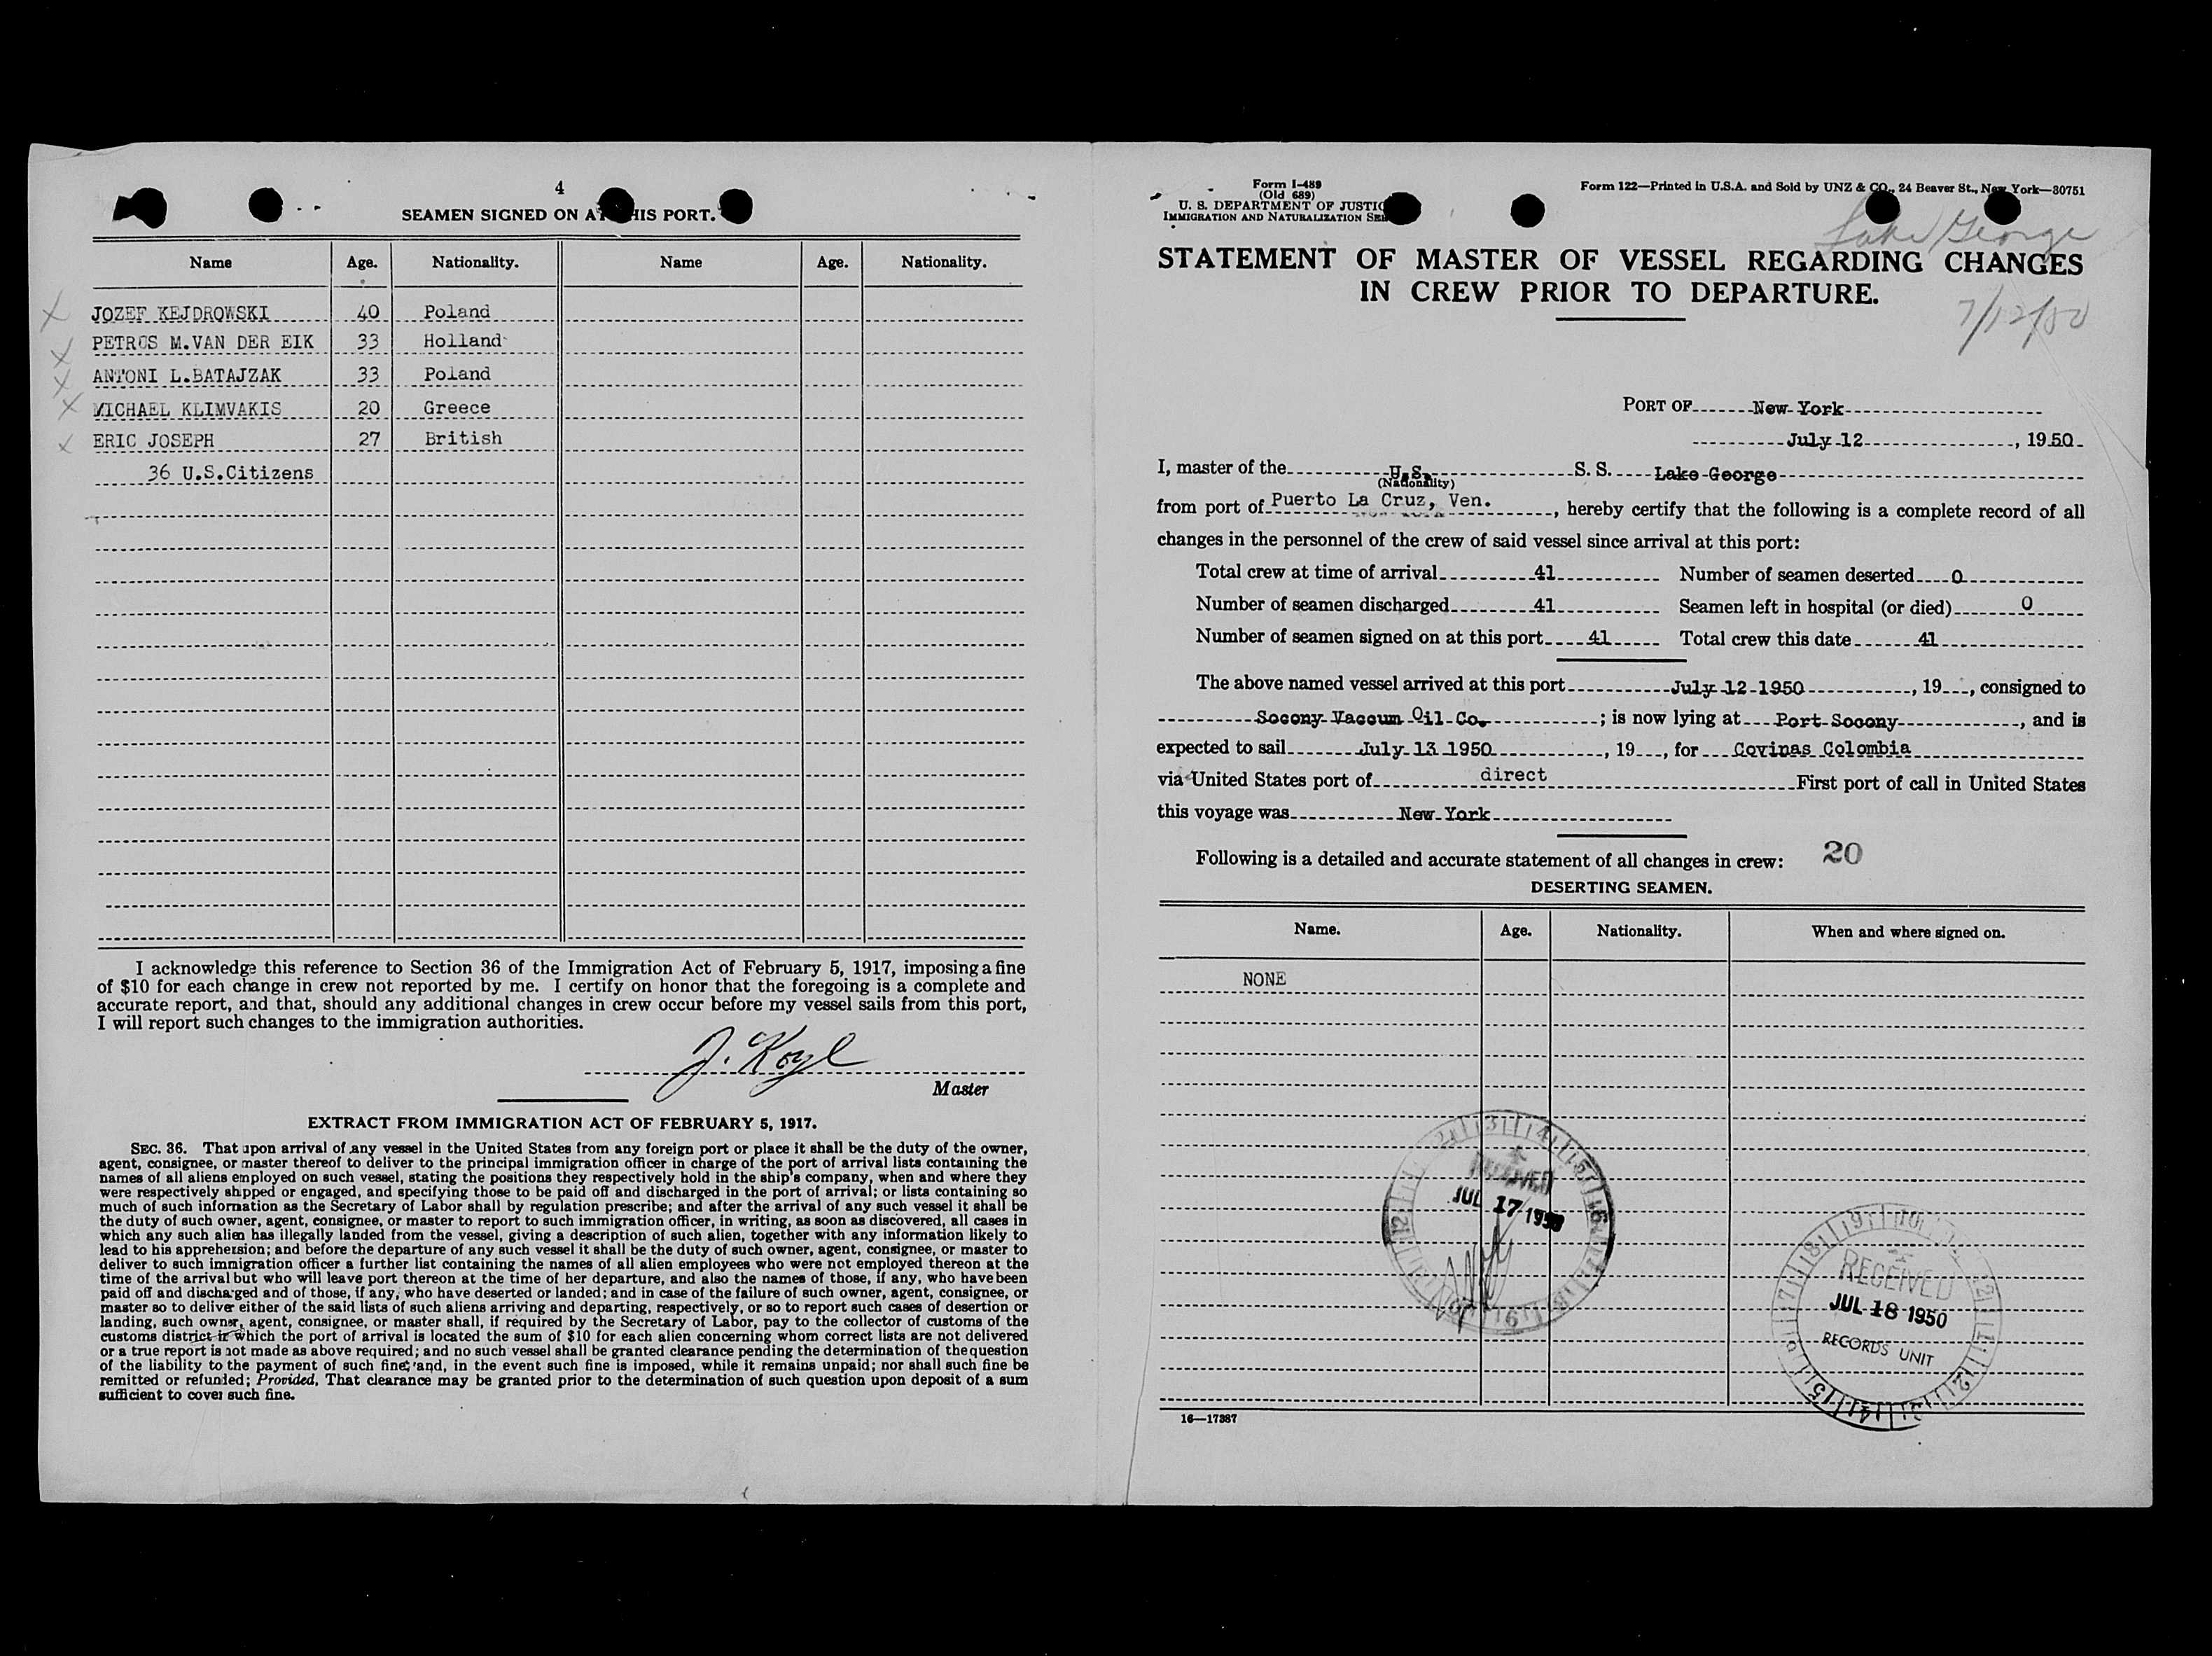 4
SEAMEN SIGNED ON AT THIS PORT.
Name Age. Nationality. Name Age. Nationality.
JOZEF KEJDROWSKI 40 Poland
PETROS M.VAN DER EIK 33 Holland
ANTONI L.BATAJZAK 33 Poland
MICHAEL KLIMVAKIS 20 Greece
ERIC JOSEPH 27 British
36 U.S.Citizens
I acknowledge this reference to Section 36 of the Immigration Act of February 5, 1917, imposing a fine
of $10 for each change in crew not reported by me. I certify on honor that the foregoing is a complete and
accurate report, and that, should any additional changes in crew occur before my vessel sails from this port,
I will report such changes to the immigration authorities.
J. Koyl
Master
EXTRACT FROM IMMIGRATION ACT OF FEBRUARY 5, 1917.
SEC. 36. That upon arrival of any vessel in the United States from any foreign port or place it shall be the duty of the owner,
agent, consignee, or master thereof to deliver to the principal immigration officer in charge of the port of arrival lists containing the
names of all aliens employed on such vessel, stating the positions they respectively hold in the ship's company, when and where they
were respectively shipped or engaged, and specifying those to be paid off and discharged in the port of arrival; or lists containing so
much of such information as the Secretary of Labor shall by regulation prescribe; and after the arrival of any such vessel it shall be
the duty of such owner, agent, consignee, or master to report to such immigration officer, in writing, as soon as discovered, all cases in
which any such alien has illegally landed from the vessel, giving a description of such alien, together with any information likely to
lead to his apprehension; and before the departure of any such vessel it shall be the duty of such owner, agent, consignee, or master to
deliver to such immigration officer a further list containing the names of all alien employees who were not employed thereon at the
time of the arrival but who will leave port thereon at the time of her departure, and also the names of those, if any, who have been
paid off and discharged and of those, if any, who have deserted or landed; and in case of the failure of such owner, agent, consignee, or
master so to deliver either of the said lists of such aliens arriving and departing, respectively, or so to report such cases of desertion or
landing, such owner, agent, consignee, or master shall, if required by the Secretary of Labor, pay to the collector of customs of the
customs district in which the port of arrival is located the sum of $10 for each alien concerning whom correct lists are not delivered
or a true report is not made as above required; and no such vessel shall be granted clearance pending the determination of the question
of the liability to the payment of such fine, and, in the event such fine is imposed, while it remains unpaid; nor shall such fine be
remitted or refunded; Provided, That clearance may be granted prior to the determination of such question upon deposit of a sum
sufficient to cover such fine.
Form I-489
(Old 689)
U. S. DEPARTMENT OF JUSTIC
IMMIGRATION AND NATURALIZATION SER
Form 122—Printed in U.S.A. and Sold by UNZ & CO., 24 Beaver St., New York—30751
Lake George
STATEMENT OF MASTER OF VESSEL REGARDING CHANGES
IN CREW PRIOR TO DEPARTURE.
7/12/50
PORT OF New York
July 12, 1950
I, master of the U.S. S. S. Lake George
(Nationality)
from port of Puerto La Cruz, Ven., hereby certify that the following is a complete record of all
changes in the personnel of the crew of said vessel since arrival at this port:
Total crew at time of arrival 41 Number of seamen deserted 0
Number of seamen discharged 41 Seamen left in hospital (or died) 0
Number of seamen signed on at this port 41 Total crew this date 41
The above named vessel arrived at this port July 12 1950, 19, consigned to
Socony Vaccum Oil Co. ; is now lying at Port Socony, and is
expected to sail July 13 1950, 19, for Covinas Colombia
via United States port of direct First port of call in United States
this voyage was New York
Following is a detailed and accurate statement of all changes in crew: 20
DESERTING SEAMEN.
Name. Age. Nationality. When and where signed on.
NONE
RECEIVED
JUL 17 1950
RECEIVED
JUL 18 1950
RECORDS UNIT
16—17387